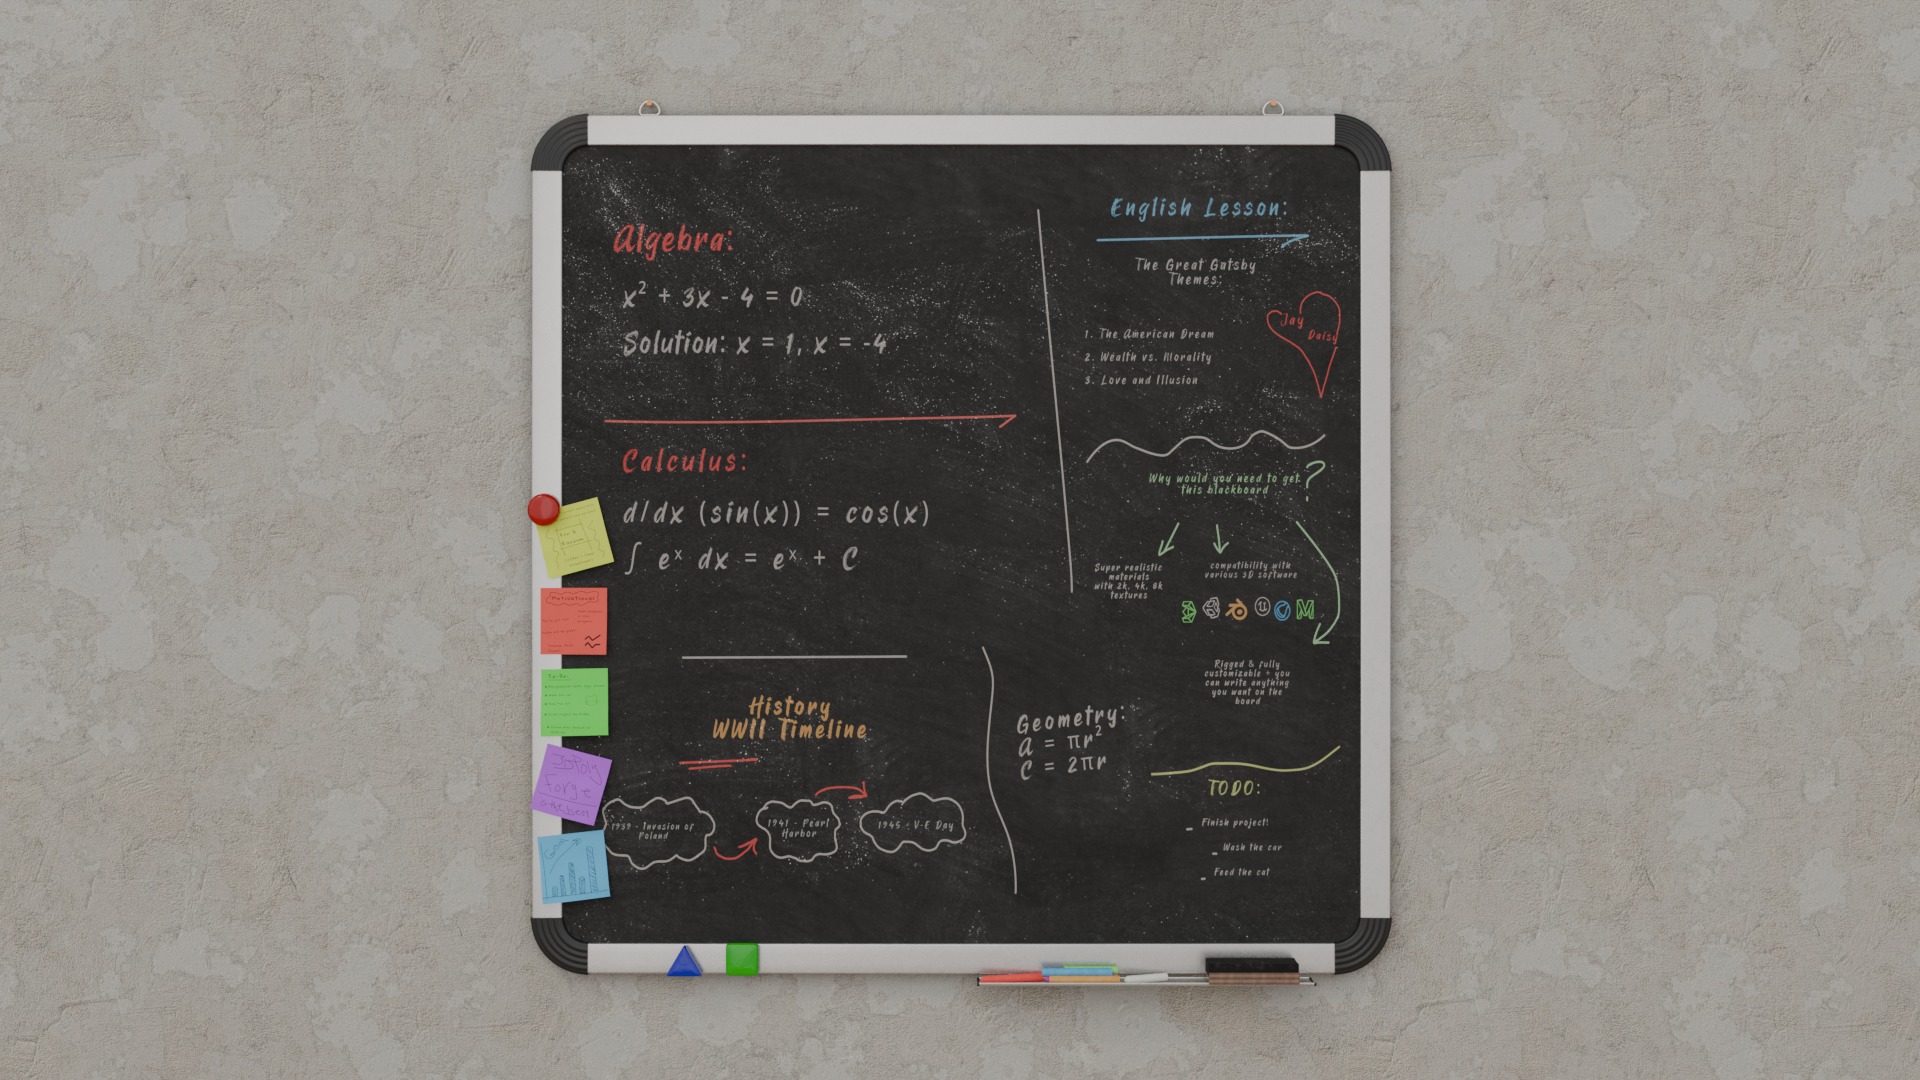 Algebra:
x² + 3x - 4 = 0
Solution: x = 1, x = -4
Calculus:
d/dx (sin(x)) = cos(x)
∫ eˣ dx = eˣ + C
History
WWII Timeline
1939 - Invasion of
Poland
1941 - Pearl
Harbor
1945 - V-E Day
Geometry:
A = πr²
C = 2πr
English Lesson:
The Great Gatsby
Themes:
1. The American Dream
2. Wealth vs. Morality
3. Love and Illusion
Jay
Daisy
Why would you need to get
this blackboard ?
Super realistic
materials
with 2k, 4k, 8k
textures
compatibility with
various 3D software
Rigged & fully
customizable + you
can write anything
you want on the
board
TODO:
- Finish project!
- Wash the car
- Feed the cat
Motivational
To-Do:
Forge